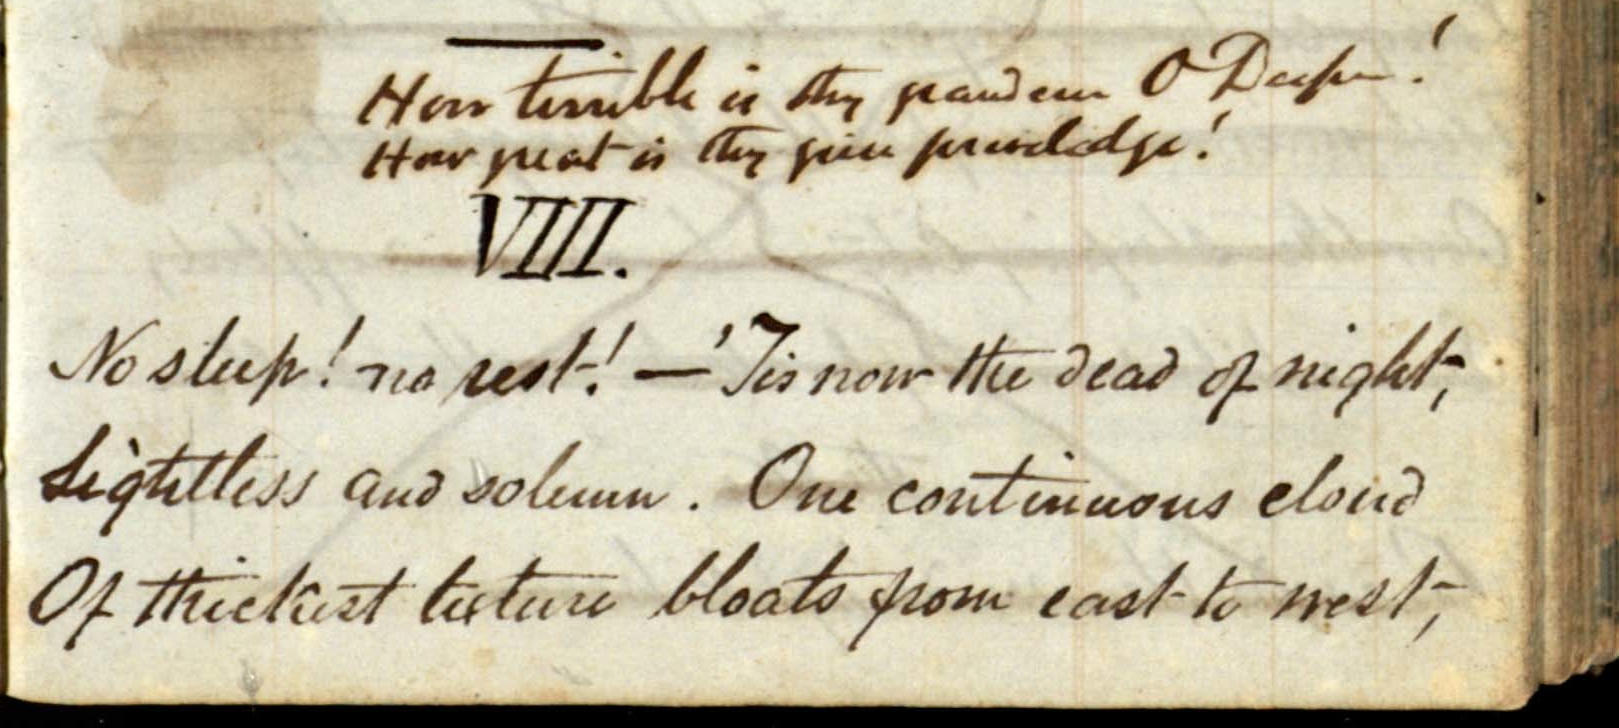 How terrible is thy grandeur O Deep!
How great is thy priviledge!
VIII.
No sleep! no rest! — 'Tis now the dead of night,
Lightless and solemn. One continuous cloud
Of thickest texture bloats from east to west,